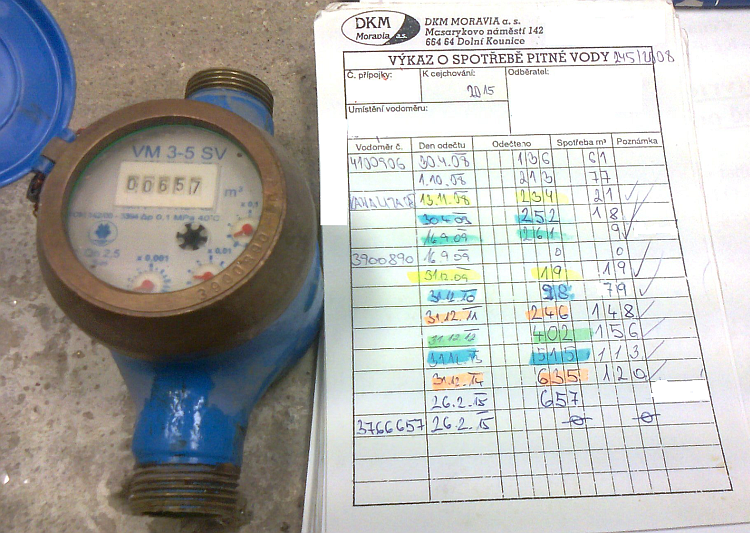 VM 3-5 SV
00657
m³
x 0,1
Qn 2,5
x 0,001
x 0,01
DKM
Moravia a.s.
DKM MORAVIA a. s.
Masarykovo náměstí 142
664 64 Dolní Kounice
VÝKAZ O SPOTŘEBĚ PITNÉ VODY 245/2008
Č. přípojky: K cejchování: Odběratel:
2015
Umístění vodoměru:
Vodoměr č. Den odečtu Odečteno Spotřeba m³ Poznámka
4100906 30.4.08 136 61
1.10.08 213 77
13.11.08 234 21
30.4.09 252 18
16.9.09 261 9
3900890 16.9.09 0 0
31.12.09 19 19
31.12.10 98 79
31.12.11 246 148
31.12.12 402 156
31.12.13 515 113
31.12.14 635 120
26.2.15 657
3766657 26.2.15 0 0